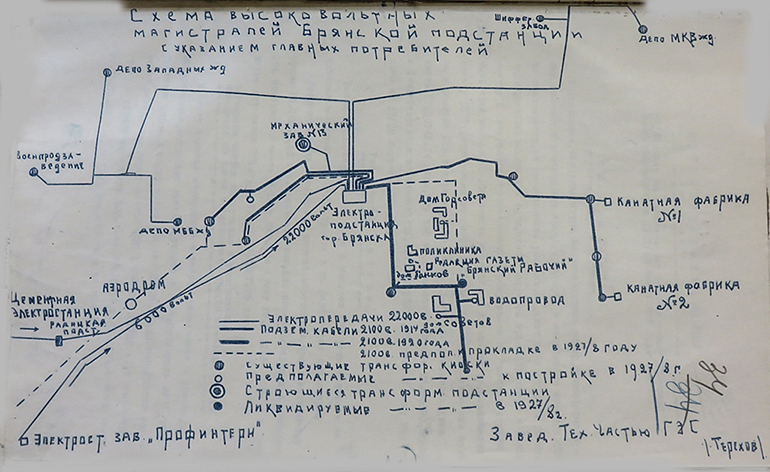 Схема высоковольтных
магистралей Брянской подстанции
с указанием главных потребителей
Шифер.
завод
Депо МКВжд.
Депо Западных жд
Механический
зав. №13
Военпродза-
ведение
Депо МББжд
22000 вольт
Электро-
подстанция
гор. Брянска
Дом Горсовета
Канатная фабрика
№1
Поликлиника
Редакция газеты
"Брянский Рабочий"
Дом банков
Аэродром
6000 вольт
Цементная
Электростанция
Канатная фабрика
№2
Водопровод
Дом Советов
Электропередачи 22000 в.
Подзем. кабели 2100 в. 1914 года
— „ — „ — 2100 в. 1920 года
2100 в. предпол. к прокладке в 1927/8 году
Существующие трансфор. киоски
Предполагаемые — „ — „ — к постройке в 1927/8 г.
Строющиеся трансформ. подстанции
Ликвидируемые — „ — „ — в 1927/8 г.
Электрост. зав. „Профинтерн"
Завед. Тех. Частью ГЭС
(Терехов)